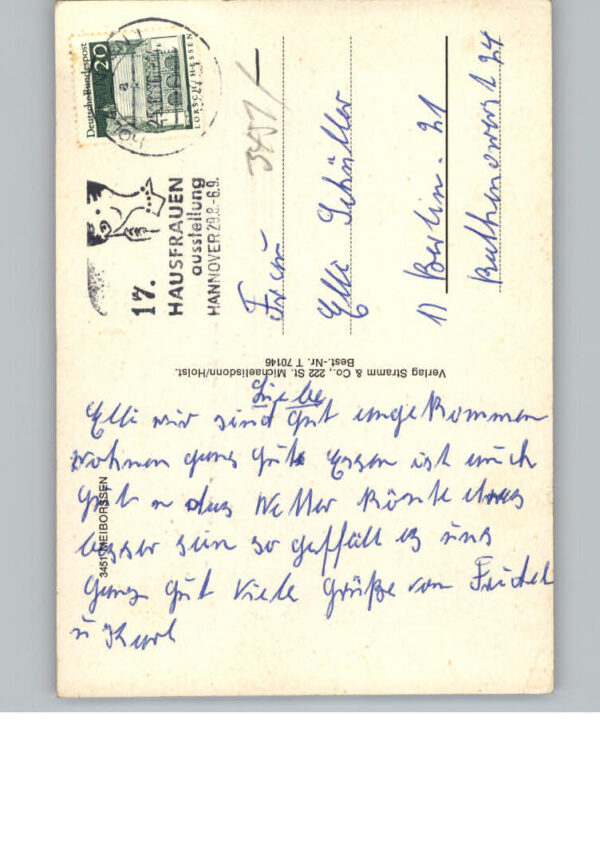 Deutsche Bundespost
20
LORSCH / HESSEN
17.
HAUSFRAUEN
ausstellung
HANNOVER 29.8.-6.9.
3451
Frau
Elli Schüller
1) Berlin. 21
Rathenowerst 24
Verlag Stramm & Co., 222 St. Michaelisdonn/Holst.
Best.-Nr. T 70146
3451 MEIBORSSEN
Liebe
Elli wir sind gut angekommen
wohnen ganz gut Essen ist auch
gut u das Wetter könte etwas
besser sein so gefällt es uns
ganz gut Viele Grüße von Friedel
u Karl